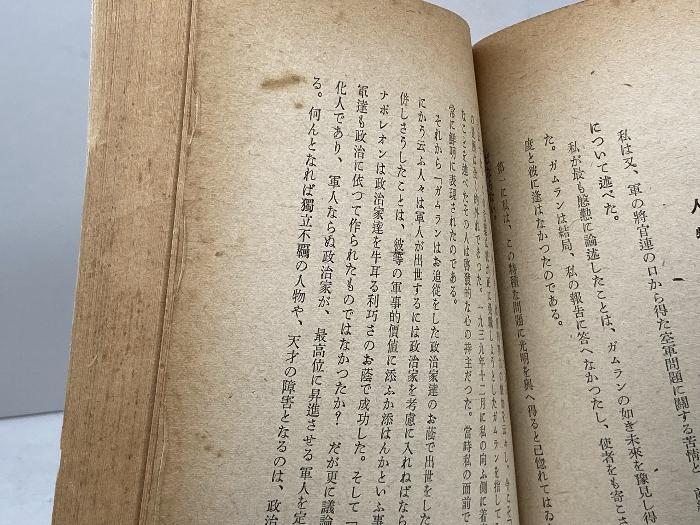 私は又、軍の將官連の口から得た空軍問題に關する苦情と
について述べた。
私が最も慇懃に論述したことは、ガムランの如き未來を豫見し得
た。ガムランは結局、私の報告に答へなかつたし、使者をも寄こさ
度と彼に逢はなかつたのである。
第一に私は、この特種な問題に光明を與へ得ると己惚れてはゐ
しようとしたガムランを指して
一九三九年十二月に私の向ふ側に若
なことを述べたその人は啓發的な心の持主だつた。當時私の面前で
常に鮮明に表現されたのである。
それから「ガムランはお追從をした政治家達のお蔭で出世をした
にかう云ふ人々は軍人が出世するには政治家を考慮に入れねばなら
併しさうしたことは、彼等の軍事的價値に添ふか添はんかといふ事
ナポレオンは政治家達を牛耳る利巧さのお蔭で成功した。そして「
軍達も政治に依つて作られたものではなかつたか？　だが更に議論
化人であり、軍人ならぬ政治家が、最高位に昇進させる軍人を定
る。何んとなれば獨立不羈の人物や、天才の障害となるのは、政治